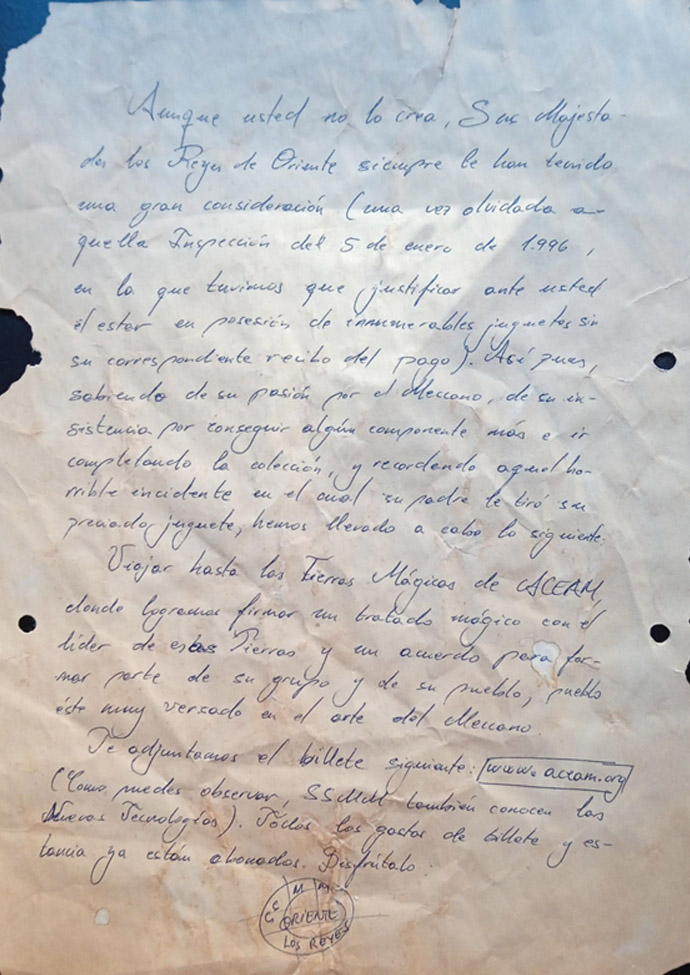 Aunque usted no lo crea, Sus Majesta-
des los Reyes de Oriente siempre le han tenido
una gran consideración (una vez olvidada a-
quella Inspección del 5 de enero de 1.996,
en la que tuvimos que justificar ante usted
el estar en posesión de innumerables juguetes sin
su correspondiente recibo del pago). Así pues,
sabiendo de su pasión por el Meccano, de su in-
sistencia por conseguir algún componente más e ir
completando la colección, y recordando aquel ho-
rrible incidente en el cual su padre le tiró su
preciado juguete, hemos llevado a cabo lo siguiente:
Viajar hasta las Tierras Mágicas de ACEAM,
donde logramos firmar un tratado mágico con el
líder de estas Tierras y un acuerdo para for-
mar parte de su grupo y de su pueblo, pueblo
éste muy versado en el arte del Meccano.
Te adjuntamos el billete siguiente: www.aceam.org
(Como puedes observar, SSMM también conocen las
Nuevas Tecnologías). Todos los gastos de billete y es-
tancia ya están abonados. Disfrútalo.
M M
ORIENTE
LOS REYES